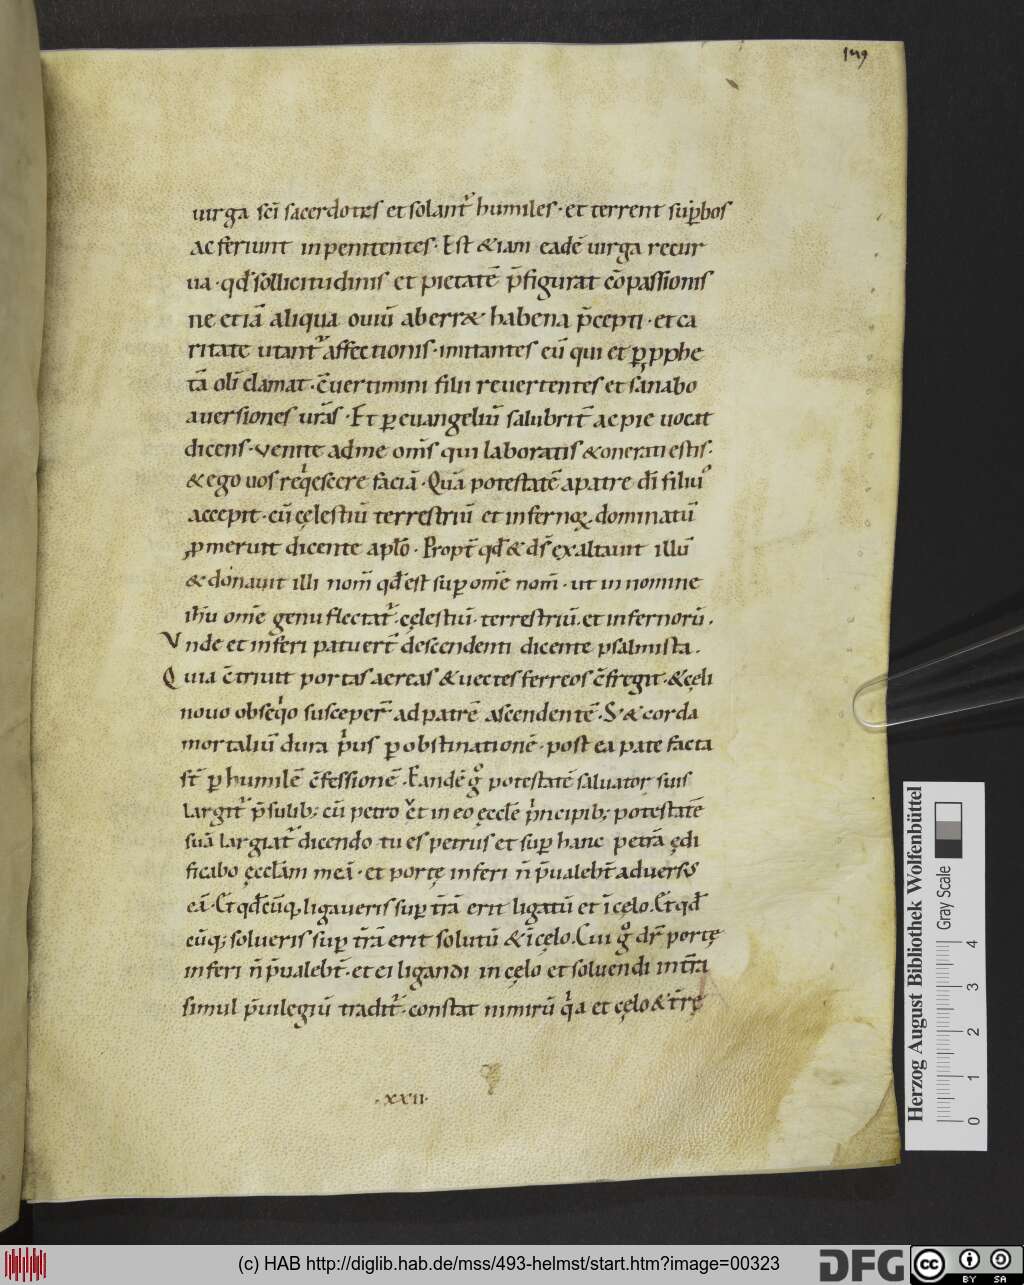 149
uirga scī sacerdotes et solant᷑ humiles · et terrent sup̱bos
ac feriunt inpenitentes · Est &iam eadē uirga recur
ua · qđ sollicitudinis et pietatē p̄figurat cōpassionis
ne etiā aliqua ouiū aberr& habena p̄cepti · et ca
ritate utant᷑ affectionis · imitantes eū qui et ꝑ pphe
tā oli᷑ clamat · c̄uertimini filii reuertentes et sanabo
auersiones ur̄as · Et ꝑ euangeliū salubrit̄ ac pie uocat
dicens · venite adme om̄s qui laboratis &onerati estis ·
& ego uos reqͥescere faciā · Quā potestatē apatre dī filiuˢ
accepit · cū cęlestiū terrestriū et infernoꝝ dominatū
ꝓmeruit dicente apło · Propt̄ qđ & ds̄ exaltauit illū
& donauit illi nom̄ qđ est sup om̄e nom̄ · ut in nomine
ihū om̄e genu flectat᷑ · cęlestiū · terrestriū · et infernorū .
Vnde et inferi patuer̄t descendenti dicente psalmista .
Quia c̄triuit portas aereas & uectes ferreos c̄fregit · & cęli
nouo obseqͥo susceper̄t ad patrē ascendentē · S; & corda
mortaliū dura pͥus ꝑ obstinationē · post ea pate facta
st̄ ꝑ humilē c̄fessionē · Eandē gͦ potestatē saluator suis
largit᷑ p̄sulib; cū petro &̌ in eo ęcclē pͥncipib; potestatē
suā largiat᷑ dicendo tu es petrus et suꝑ hanc petrā ędi
ficabo ęccłam meā · et portę inferi n̄ p̄ualebt̄ aduersꝰ
eā · Et qđcūq; ligaueris suꝑ tr̄ā erit ligatū et ī cęlo . Et qđ
cūq; solueris suꝑ tr̄ā erit solutū & ī cęlo . Cui gͦ dr̄ portę
inferi n̄ p̄ualebt̄ · et ei ligandi in cęlo et soluendi in tr̄a
simul p̄uilegiū tradit᷑ · constat nimirū qͥa et cęlo & tr̄ę
· xxii ·
Herzog August Bibliothek Wolfenbüttel
Gray Scale
0 1 2 3 4
(c) HAB http://diglib.hab.de/mss/493-helmst/start.htm?image=00323
DFG
cc BY SA